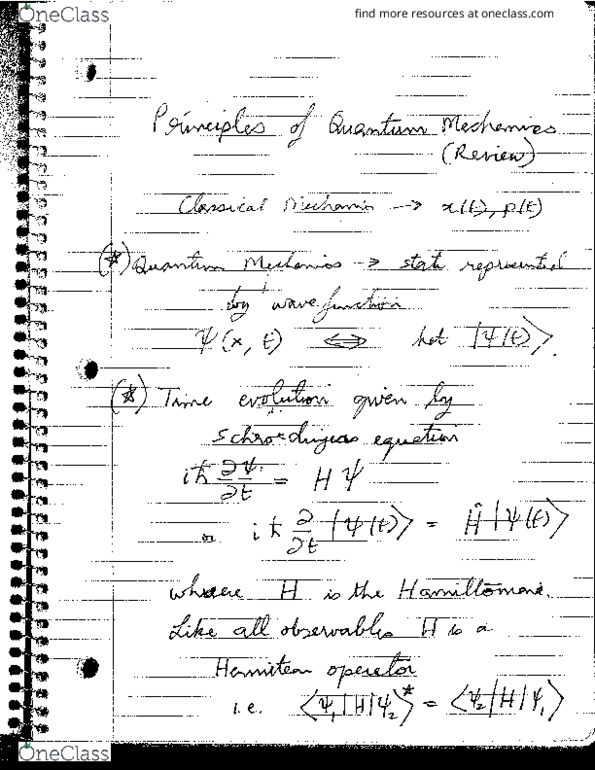 OneClass
find more resources at oneclass.com
Principles of Quantum Mechanics
(Review)
Classical Mechanis → x(t), p(t)
(*) Quantum Mechanics → state represented
by wavefunction
Ψ(x, t) ⟺ ket |Ψ(t)⟩.
(*) Time evolution given by
Schrordingers equation
iħ ∂Ψ/∂t = HΨ
or iħ ∂/∂t |Ψ(t)⟩ = Ĥ|Ψ(t)⟩
where H is the Hamiltonian.
Like all observables H is a
Hermitean operator
i.e. ⟨Ψ₁|H|Ψ₂⟩* = ⟨Ψ₂|H|Ψ₁⟩
OneClass
find more resources at oneclass.com